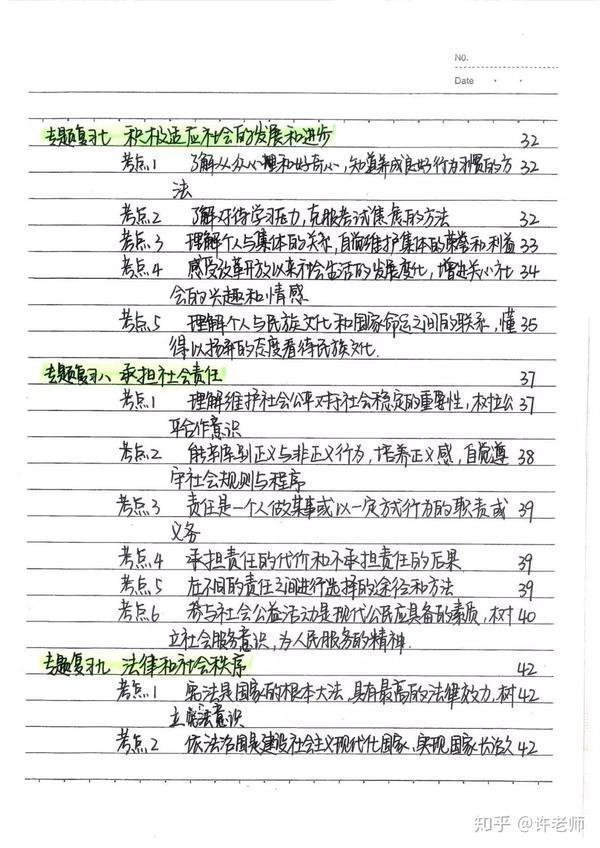 No.
Date
专题复习七 积极适应社会的发展和进步 32
考点1 了解从众心理和好奇心,知道养成良好行为习惯的方 32
法
考点2 了解对待学习压力,克服考试焦虑的方法 32
考点3 理解个人与集体的关系,自觉维护集体的荣誉和利益 33
考点4 感受改革开放以来社会生活的发展变化,增进关心社 34
会的兴趣和情感
考点5 理解个人与民族文化和国家命运之间的联系,懂 35
得以扬弃的态度看待民族文化.
专题复习八 承担社会责任 37
考点1 理解维护社会公平对于社会稳定的重要性,树立公 37
平合作意识
考点2 能够辨别正义与非正义行为,培养正义感,自觉遵 38
守社会规则与程序
考点3 责任是一个人做某事或以一定方式行为的职责或 39
义务
考点4 承担责任的代价和不承担责任的后果 39
考点5 在不同的责任之间进行选择的途径和方法 39
考点6 参与社会公益活动是现代公民应具备的素质,树 40
立社会服务意识,为人民服务的精神.
专题复习九 法律和社会秩序 42
考点1 宪法是国家的根本大法,具有最高的法律效力,树 42
立宪法意识
考点2 依法治国是建设社会主义现代化国家,实现国家长治久 42
知乎 @许老师